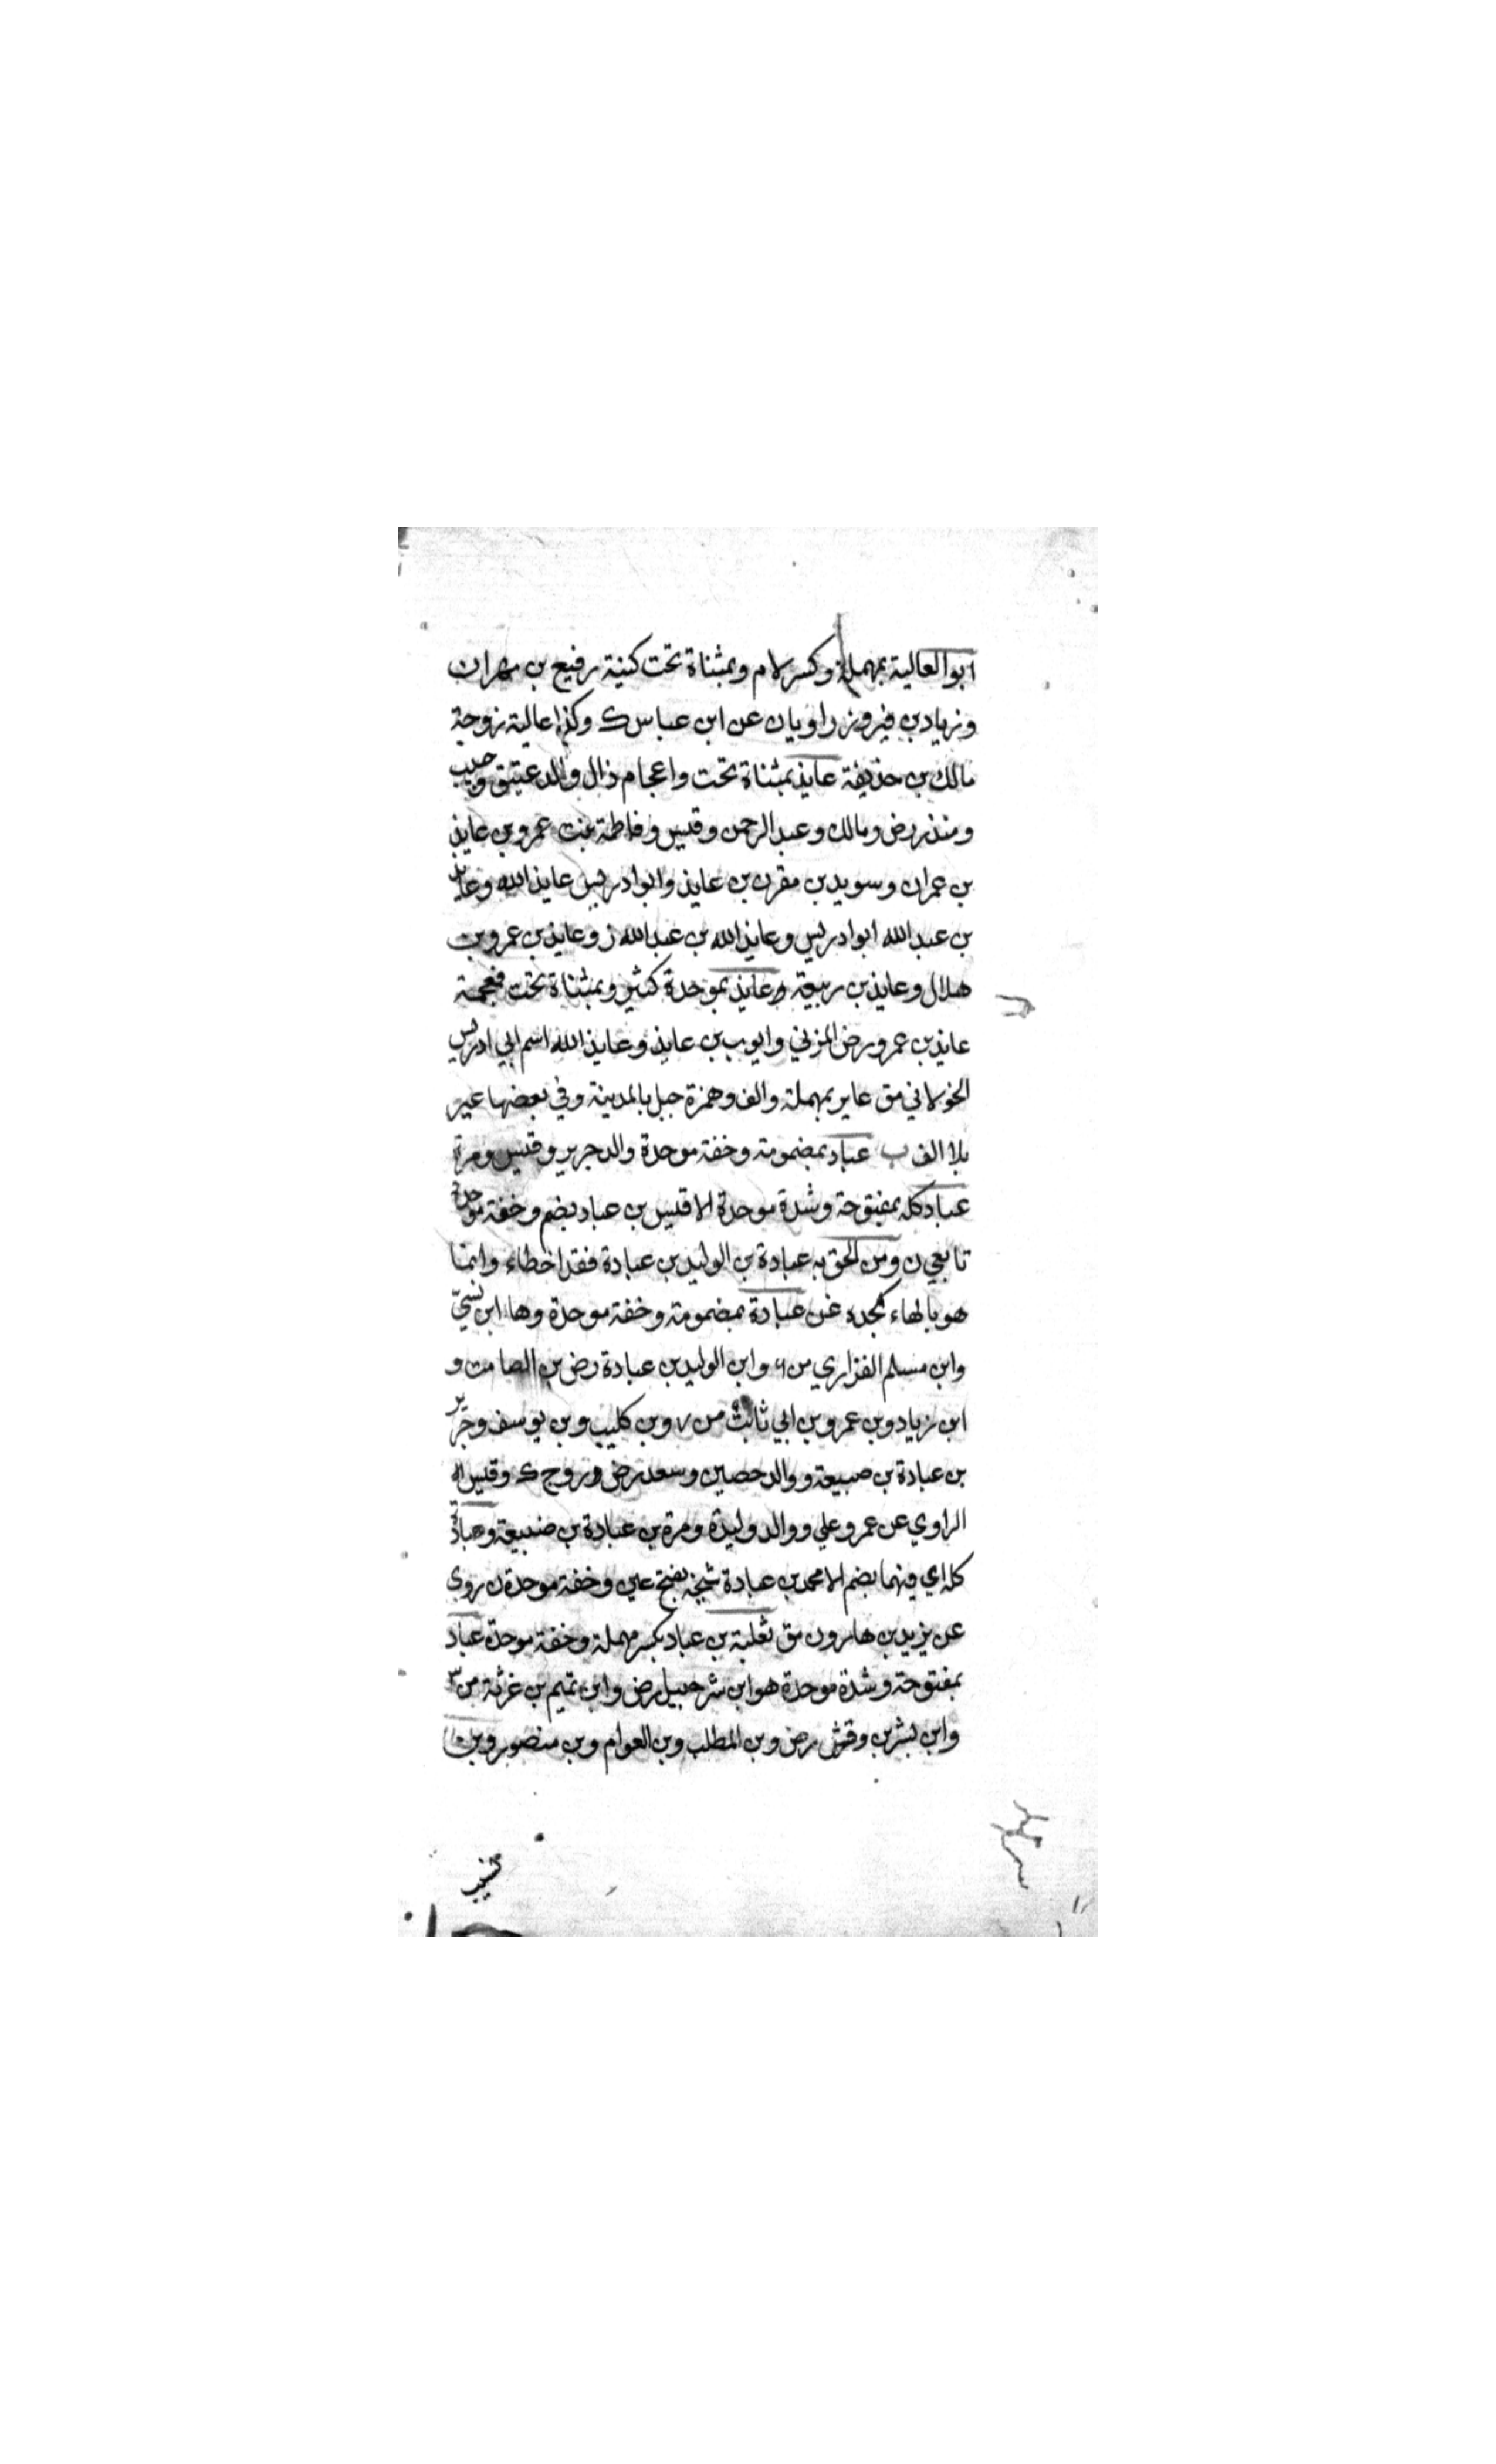 ابو العالية بمهملة وكسر لام وبمثناة تحت كنية رفيع بن مهران
وزياد بن فيروز راويان عن ابن عباس ك وكذا عالية زوجة
مالك بن حذيفة عايذ بمثناة تحت واعجام ذال والد عتيق وحبيب
ومنذر رض ومالك وعبد الرحمن وقيس وفاطمة بنت عمرو بن عايذ
بن عمران وسويد بن مقرن بن عايذ وابو ادريس عايذ الله وعايذ
بن عبد الله ابو ادريس وعايذ الله بن عبد الله ز وعايذ بن عمرو بن
هلال وعايذ بن ربيعة وعايذ بموحدة كثير وبمثناة تحت فمعجمة
عايذ بن عمرو رض المزني وايوب بن عايذ وعايذ الله اسم ابي ادريس
الخولاني مق عاير بمهملة والف وهمزة جبل بالمدينة وفي بعضها عير
بلا الف ب عباد بمضمومة وخفة موحدة والد جرير وقيس ومرة
عباد كله بمفتوحة وشدة موحدة الا قيس بن عباد بضم وخفة موحدة
تابعي ن ومن الحق به عبادة بن الوليد بن عبادة فقد اخطاء وانما
هو بالهاء كجده غن عبادة بمضمومة وخفة موحدة وها ابن نسيّ
وابن مسلم الفزاري من ٦ وابن الوليد بن عبادة رض بن الصامت و
ابن زياد وبن عمرو بن ابي ثابت من ٧ وبن كليب وبن يوسف وجرير
بن عبادة بن ضبيعة ووالد حصين وسعد رض وروح ك وقيس
الراوي عن عمر وعلي ووالد وليدة ومرة بن عبادة بن ضبيعة وعبادة
كله اي فيهما بضم الا محمد بن عبادة شيخ بفتح عين وخفة موحدة ن روى
عن يزيد بن هارون مق ثعلبة بن عباد بكسر مهملة وخفة موحدة عباد
بمفتوحة وشدة موحدة هو ابن شرحبيل رض وابن تميم بن غزية من ٣
وابن بشر بن وقش رض وبن المطلب وبن العوام وبن منصور وبن